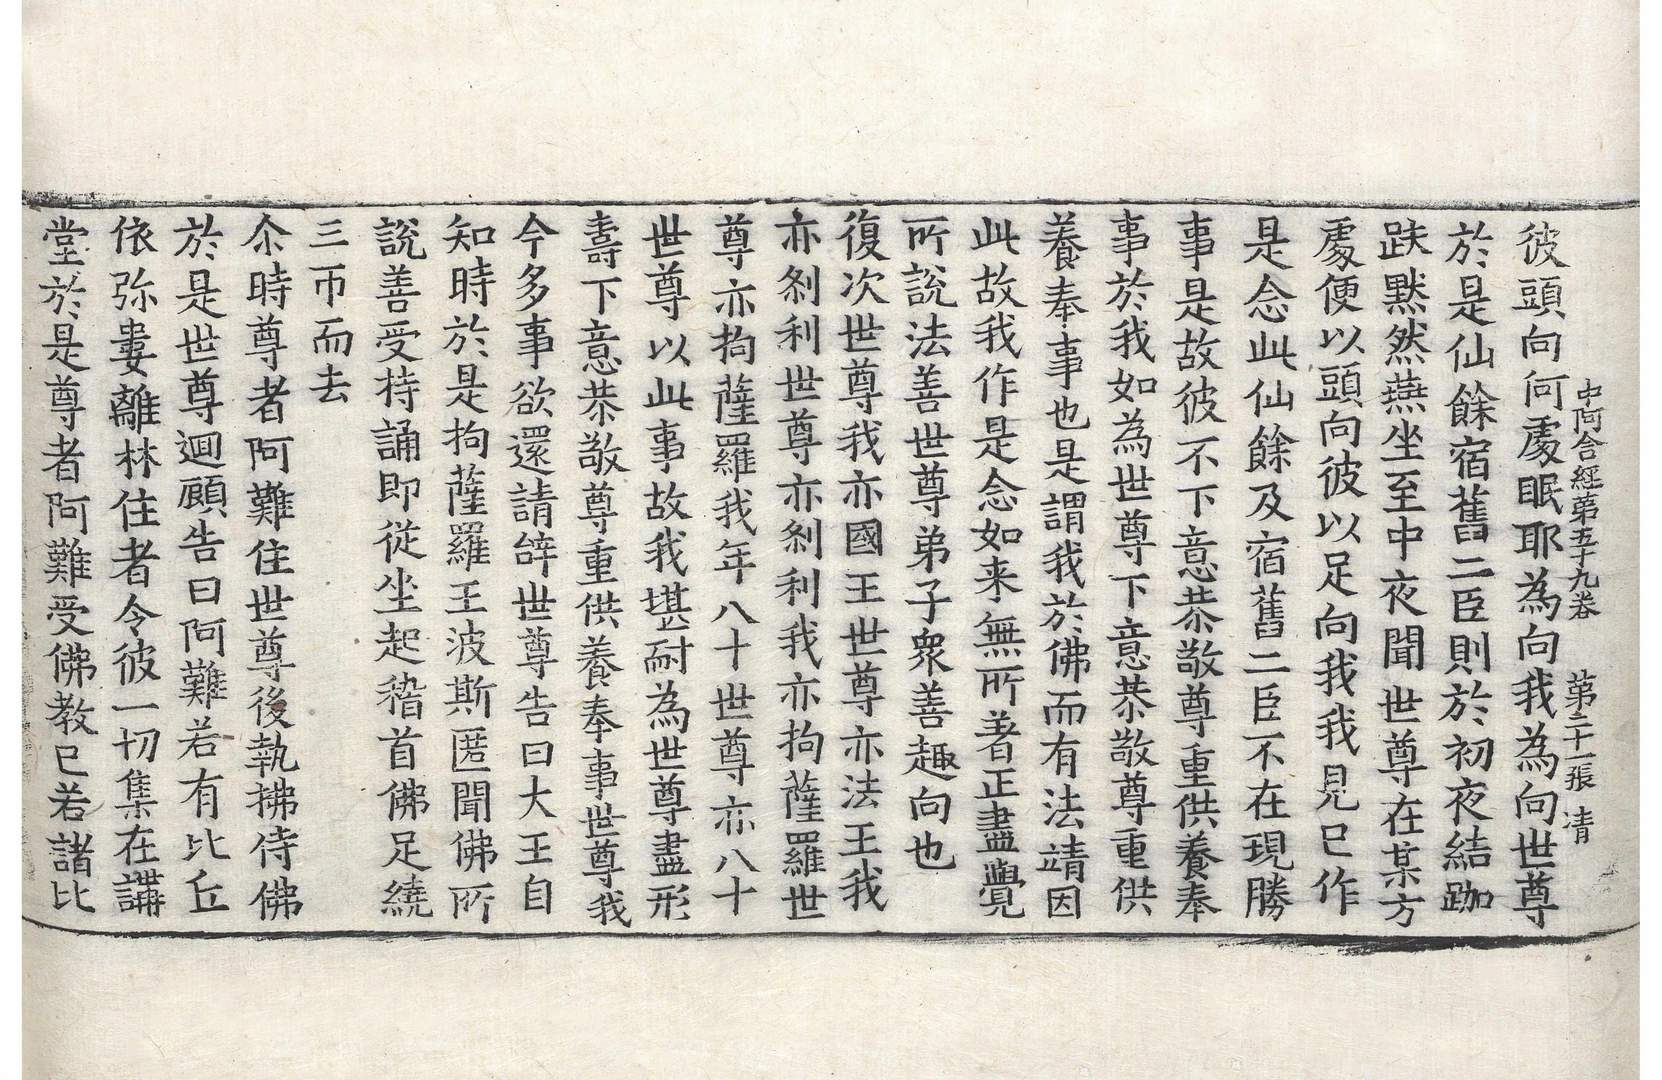 中阿含經第五十九卷 第二十一張 清
彼頭向何處眠耶為向我為向世尊
於是仙餘宿舊二臣則於初夜結跏
趺默然燕坐至中夜聞世尊在某方
處便以頭向彼以足向我我見已作
是念此仙餘及宿舊二臣不在現勝
事是故彼不下意恭敬尊重供養奉
事於我如為世尊下意恭敬尊重供
養奉事也是謂我於佛而有法靖因
此故我作是念如来無所著正盡覺
所說法善世尊弟子衆善趣向也
復次世尊我亦國王世尊亦法王我
亦剎利世尊亦剎利我亦拘薩羅世
尊亦拘薩羅我年八十世尊亦八十
世尊以此事故我堪耐為世尊盡形
壽下意恭敬尊重供養奉事世尊我
今多事欲還請辝世尊告曰大王自
知時於是拘薩羅王波斯匿聞佛所
說善受持誦即從坐起稽首佛足繞
三帀而去
尒時尊者阿難住世尊後執拂侍佛
於是世尊迴顧告曰阿難若有比丘
依弥婁離林住者令彼一切集在講
堂於是尊者阿難受佛教已若諸比